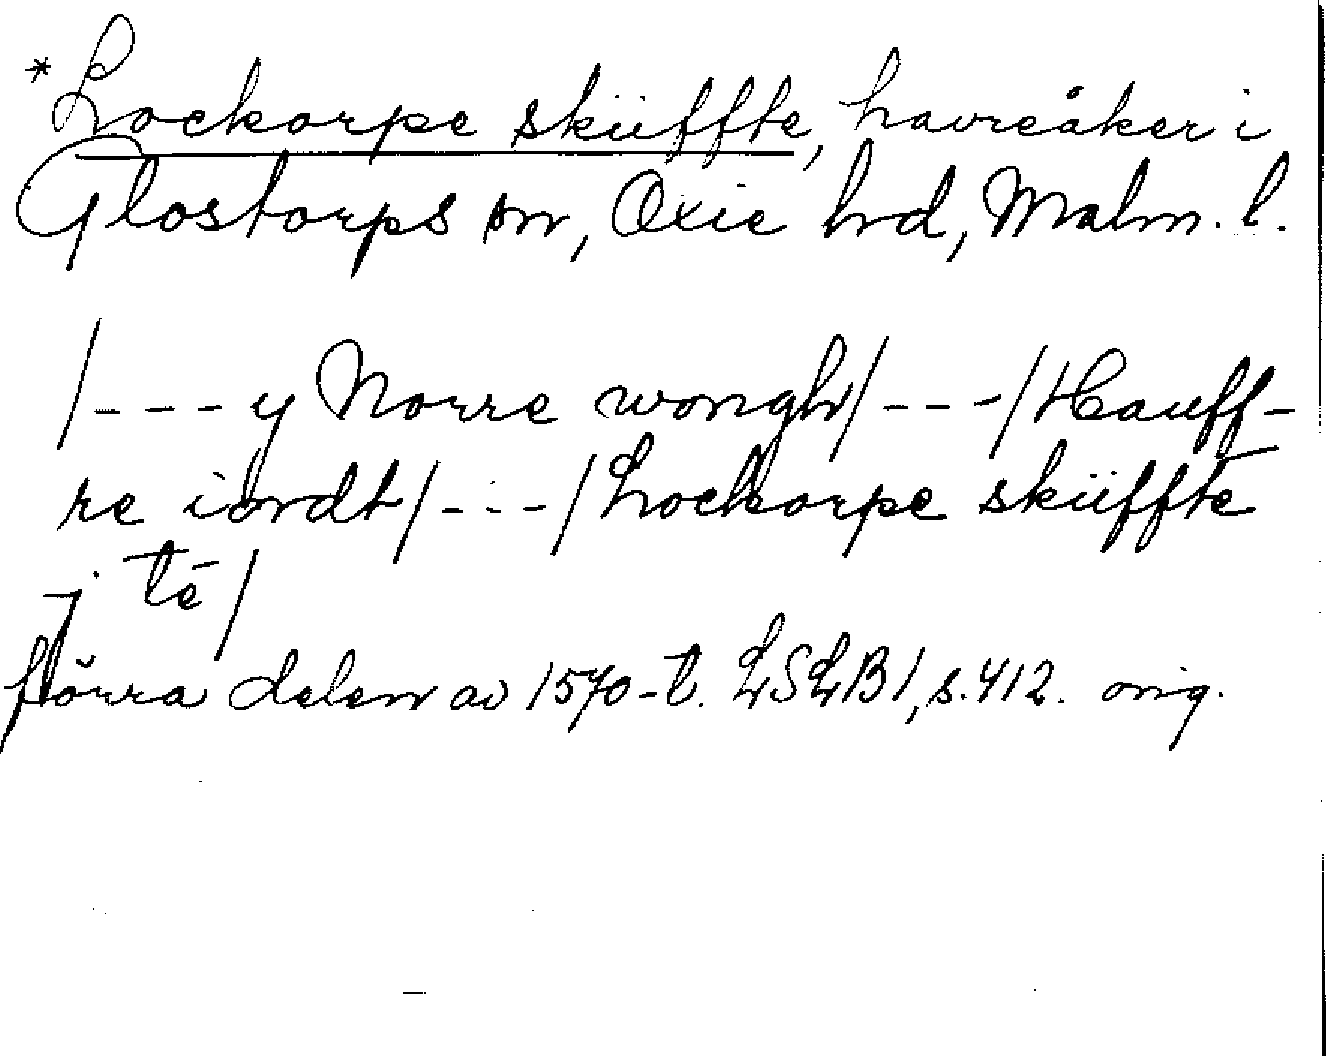 *Lockorpe sküffte, havreåker i
Glostorps sn, Oxie hrd, Malm. l.
/---y Norre wongh/---/Hauff-
re iordt/---/Lockorpe sküffte
j tē/
förra delen av 1570-t. LSLB1, s. 412. orig.